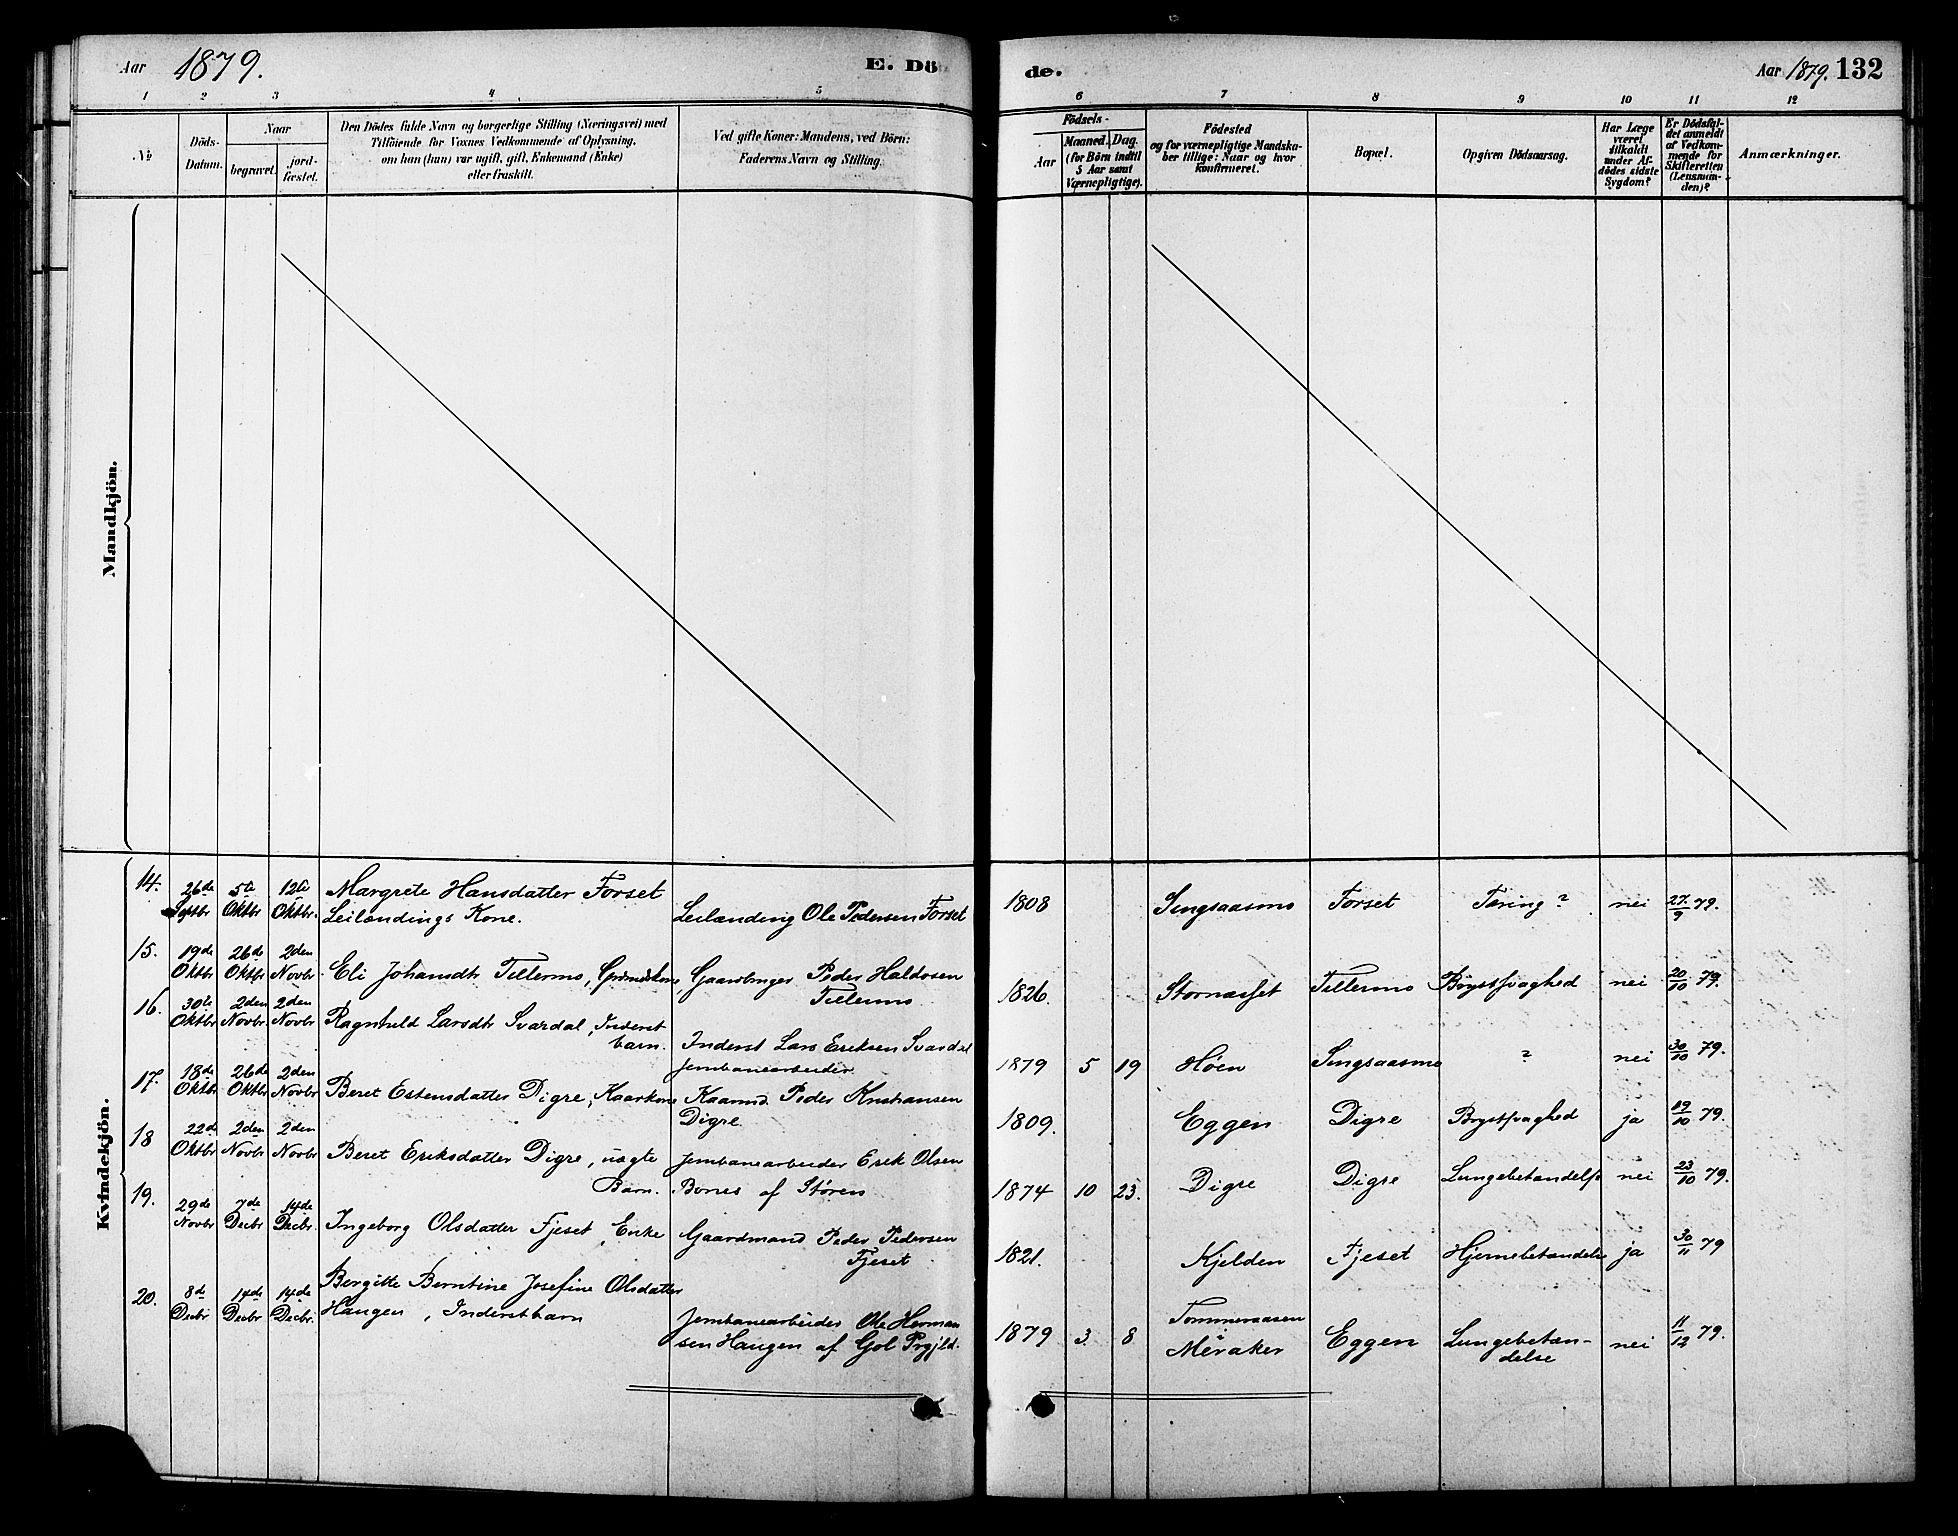 Aar 1879.
E. Dö
de.
Aar 1879. 132
1 2 3 4 5
6 7 8 9 10 11 12
No
Döds-
Datum.
Naar
begravet.
jord-
fæstet.
Den Dödes fulde Navn og borgerlige Stilling (Næringsvei) med
Tilföiende for Voxnes Vedkommende af Oplysning,
om han (hun) var ugift, gift, Enkemand (Enke)
eller fraskilt.
Ved gifte Koner: Mandens, ved Börn:
Faderens Navn og Stilling.
Födsels-
Aar
Maaned. Dag.
(for Börn indtil
5 Aar samt
Værnepligtige).
Födested
og for værnepligtige Mandska-
ber tillige: Naar og hvor
konfirmeret.
Bopæl.
Opgiven Dödsaarsag.
Har Læge
været
tilkaldt
under Af-
dödes sidste
Sygdom?
Er Dödsfal-
det anmeldt
af Vedkom-
mende for
Skifteretten
(Lensman-
den)?
Anmærkninger.
Mandkjön.
Kvindekjön.
14. 26de Septbr 5te Oktbr 12te Oktbr. Margrete Hansdatter Forset
Leilændings Kone. Leilænding Ole Pedersen Forset 1808 Singsaasmo Forset Tæring? nei 27/9 79.
15. 19de Oktbr 26de Oktbr 2den Novbr. Eli Johansdtr Tillermo, Gaardbruger Peder Haldosen
Tillermo 1826. Tillermo Brystsvaghed nei 20/10 79.
16. 30te Oktbr 2den Novbr 2den Novbr Ragnhild Larsdtr Svardal, Inderst
barn. Inderst Lars Eriksen Svardal
Jernbanearbeider. 1879 5 19 Höen Singsaasmo ? nei 30/10 79.
17. 18de Oktbr 26de Oktbr 2den Novbr Beret Estensdatter Digre, Kaarkone Kaarmd. Peder Kristiansen
Digre. 1809. Eggen Digre Brystsvaghed ja 19/10 79.
18 22de Oktbr 2den Novbr 2den Novbr Beret Eriksdatter Digre, uægte
Barn. Jernbanearbeider Erik Olsen
Bones af Stören 1874 10 23. Digre Digre Lungebetændelse nei 23/10 79.
19. 29de Novbr 7de Decbr 14de Decbr. Ingeborg Olsdatter Fjeset, Enke Gaardmand Peder Pedersen
Fjeset 1821. Kjelden Fjeset Hjernebetændelse ja 30/11 79
20. 8de Decbr 14de Decbr 14de Decbr. Bergitte Berntine Josefine Olsdatter
Haugen, Inderstbarn Jernbanearbeider Ole Herman
sen Haugen af Gol Prgjld. 1879 3. 8 Tommeraasen
Meraker Eggen Lungebetæn-
delse nei 11/12 79.